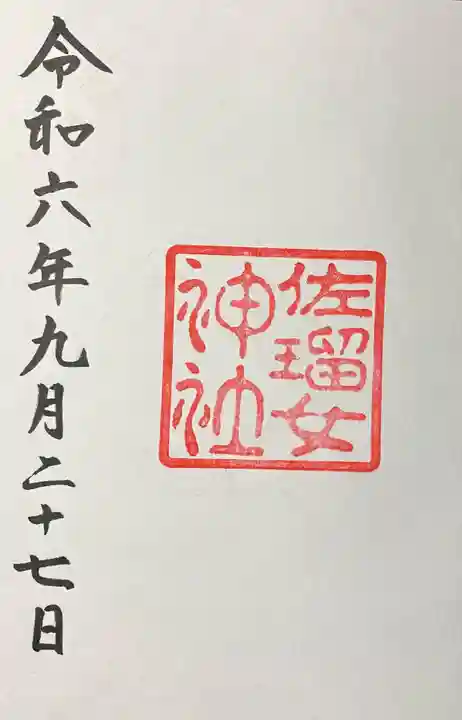 佐瑠女
神社
令和六年九月二十七日